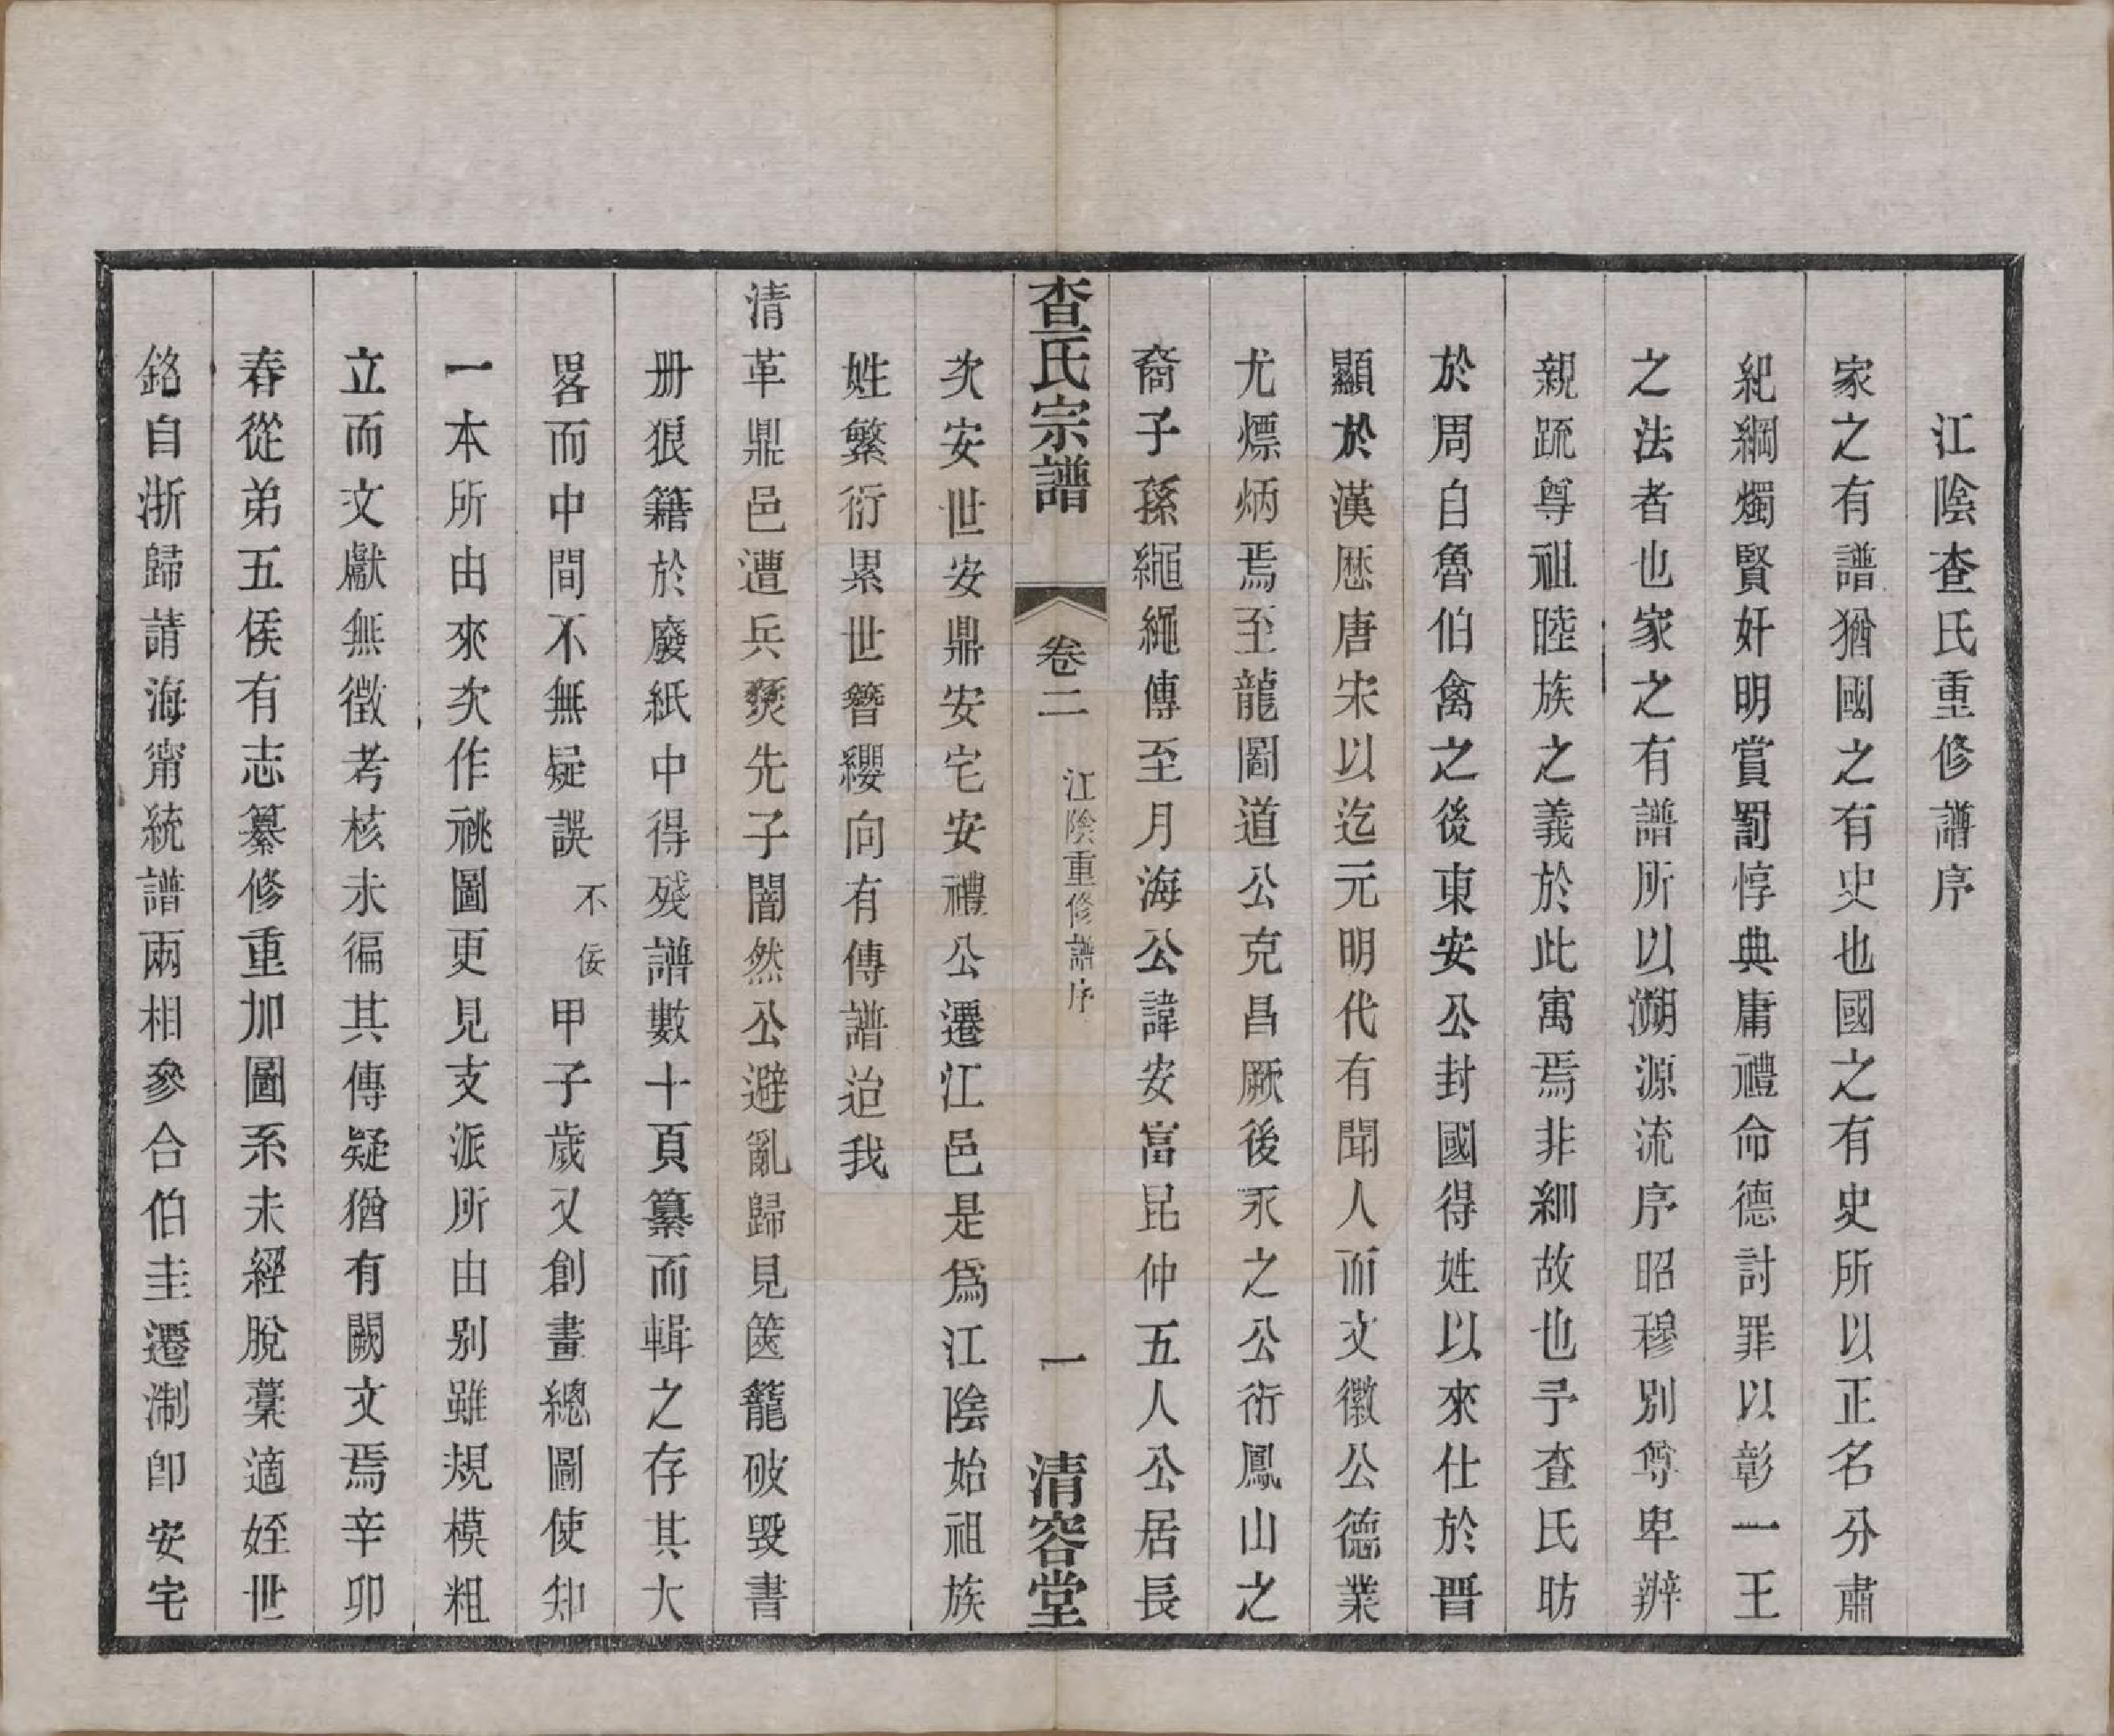 江陰查氏重修譜序
家之有譜猶國之有史也國之有史所以正名分肅
紀綱燭賢奸明賞罰惇典庸禮命德討罪以彰一王
之法者也家之有譜所以溯源流序昭穆別尊卑辨
親疏尊祖睦族之義於此寓焉非細故也予查氏昉
於周自魯伯禽之後東安公封國得姓以來仕於晋
顯於漢歷唐宋以迄元明代有聞人而文徽公德業
尤熛炳焉至龍圖道公克昌厥後永之公衍鳳山之
裔子孫繩繩傳至月海公諱安富昆仲五人公居長
查氏宗譜
卷二
江陰重修譜序
一
清容堂
次安世安鼎安宅安禮公遷江邑是為江陰始祖族
姓繁衍累世簪纓向有傳譜迨我
清革鼎邑遭兵燹先子闇然公避亂歸見篋籠破毀書
册狼籍於廢紙中得殘譜數十頁纂而輯之存其大
畧而中間不無疑誤不佞甲子歲又創畫總圖使知
一本所由來次作祧圖更見支派所由別雖規模粗
立而文獻無徵考核未徧其傳疑猶有闕文焉辛卯
春從弟五侯有志纂修重加圖系未經脫藁適姪世
銘自浙歸請海甯統譜兩相參合伯圭遷淛卽安宅